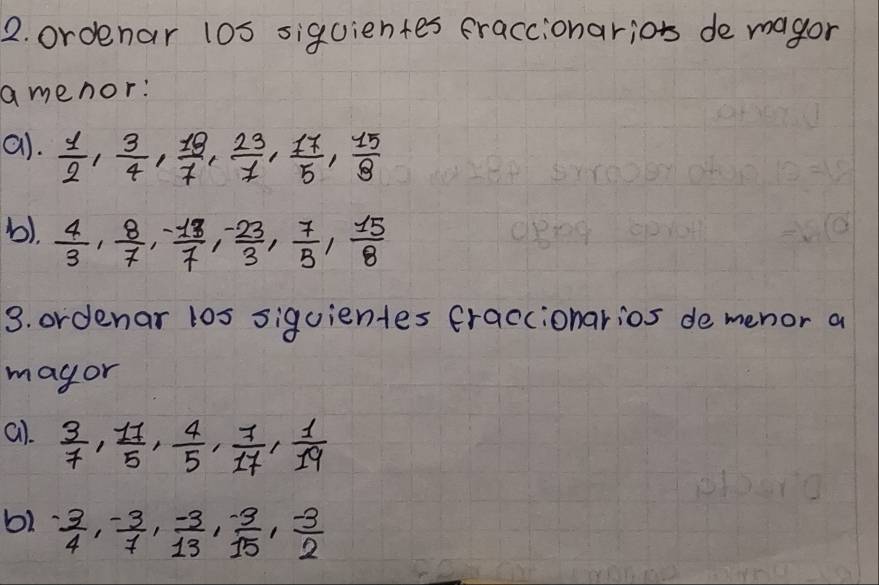 2. ordenar los siguientes fraccionarios de mayor
a menor:
a). 1/2, 3/4, 18/7, 23/7, 17/5, 15/8
b). 4/3, 8/7, -18/7, -23/3, 7/5, 15/8
3. ordenar los siguientes fraccionarios de menor a
mayor
a). 3/7, 17/5, 4/5, 7/17, 1/19
b) -3/4, -3/7, -3/13, -3/15, -3/2